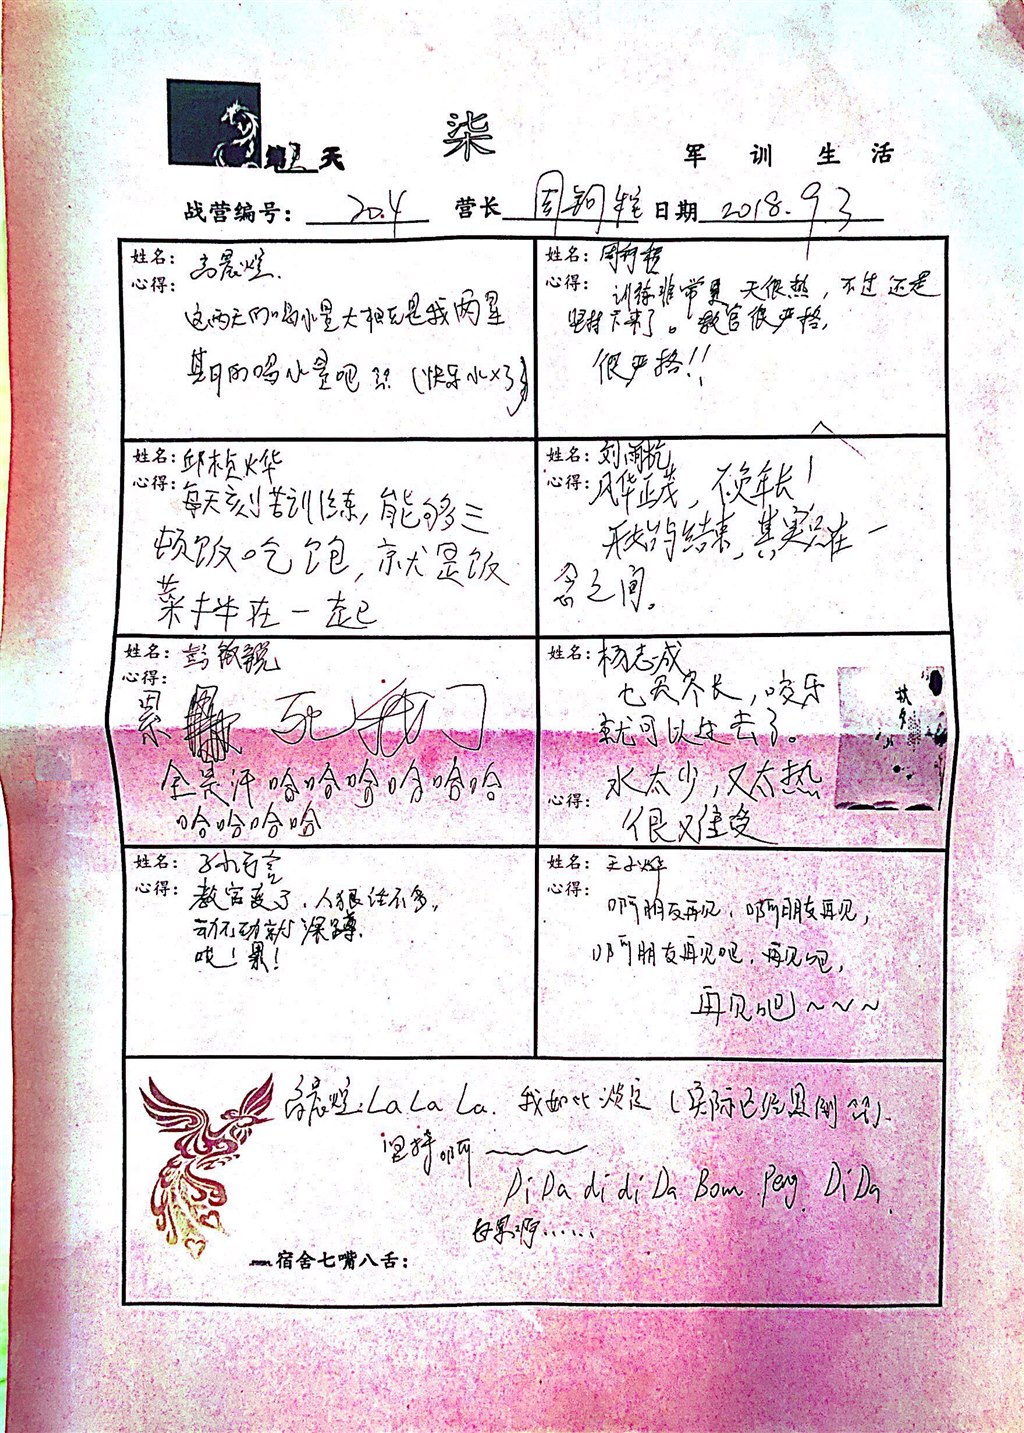 柒
第 天
军训生活
战营编号: 20.4 营长 周钶程 日期 2018.9.3
姓名:
高晨煌.
心得:
这两天的喝水量大概是我两星
期的喝水量吧 (快乐水×3)
姓名: 周钶程
心得: 训练非常累 天很热,不过还是
坚持下来了。教官很严格,
很严格!!
姓名: 邱桢烨
心得: 每天刻苦训练,能够三
顿饭吃饱,就是饭
菜拌在一起
姓名: 刘雨杭
心得: 风华正茂,不负年长!
开始与结束,其实只在一
念之间。
姓名: 彭
心得:
累 死我了
全是汗哈哈哈哈哈哈
哈哈哈哈
姓名: 杨志成
也 长,咬牙
就可以过去了。
心得: 水太少,又太热
很难受
姓名:
心得: 教官变了,人狠话不多,
动不动就深蹲.
哎!累!
姓名: 王子烨
心得:
啊朋友再见,啊朋友再见,
啊朋友再见吧,再见吧,
再见吧~~~
高晨煌:La La La. 我如此淡定(实际已经累倒 ).
坚持啊
Di Da di di Da Bom Peng Di Da
如果啊……
宿舍七嘴八舌: